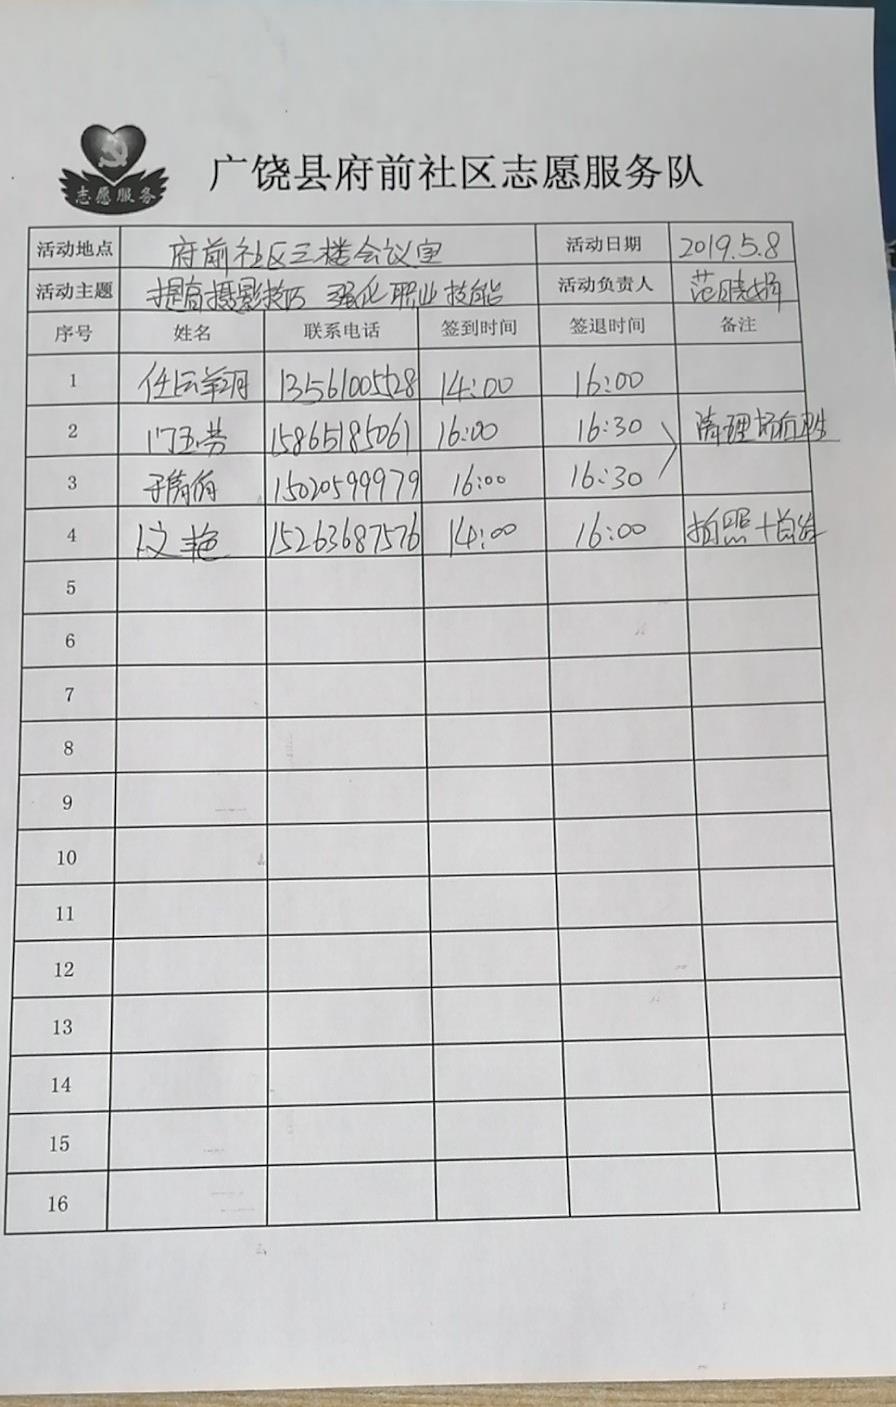 志愿服务
广饶县府前社区志愿服务队
活动地点 府前社区三楼会议室 活动日期 2019.5.8
活动主题 提高摄影技巧 强化职业技能 活动负责人 范晓娟
序号 姓名 联系电话 签到时间 签退时间 备注
1 任云翔 13561005528 14:00 16:00
2 门玉芳 15865185061 16:00 16:30 清理场面卫生
3 15020599979 16:00 16:30
4 艳 15263687576 14:00 16:00 拍照+总结
5
6
7
8
9
10
11
12
13
14
15
16